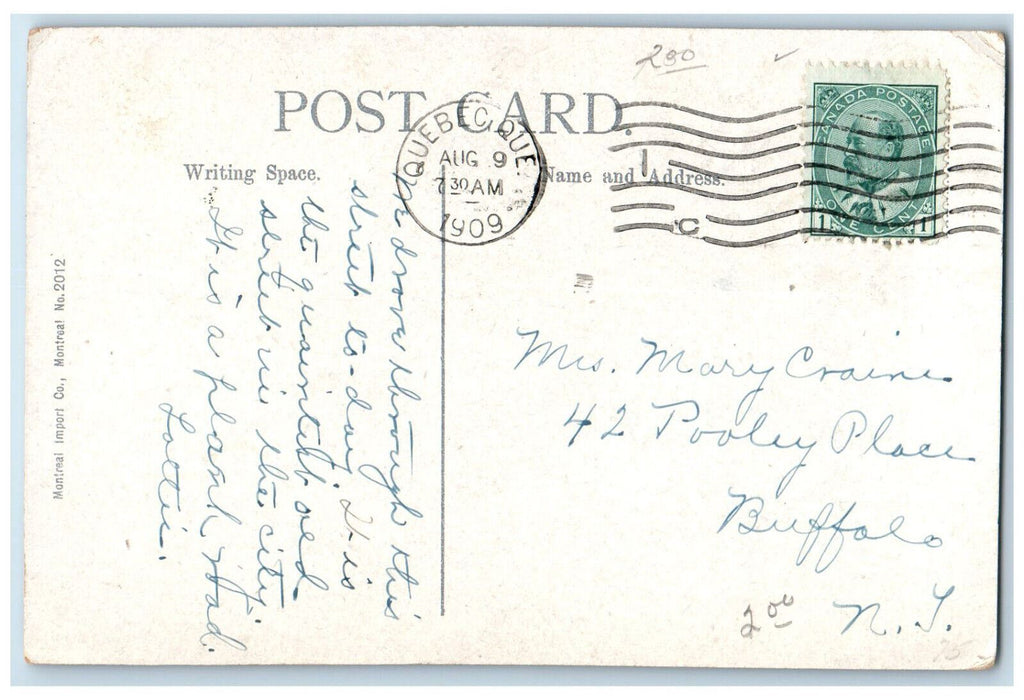 POST CARD.
Writing Space.
Name and Address.
QUEBEC, QUE.
AUG 9
7 30 AM
1909
1
C
CANADA POSTAGE
1 ONE CENT 1
280
We drove through this
street to-day. It is
the quaintest old
street in the city
It is a plank road.
Lottie.
Mrs. Mary Craine
42 Pooley Place
Buffalo
N. Y.
2 00
75
Montreal Import Co., Montreal No. 2012